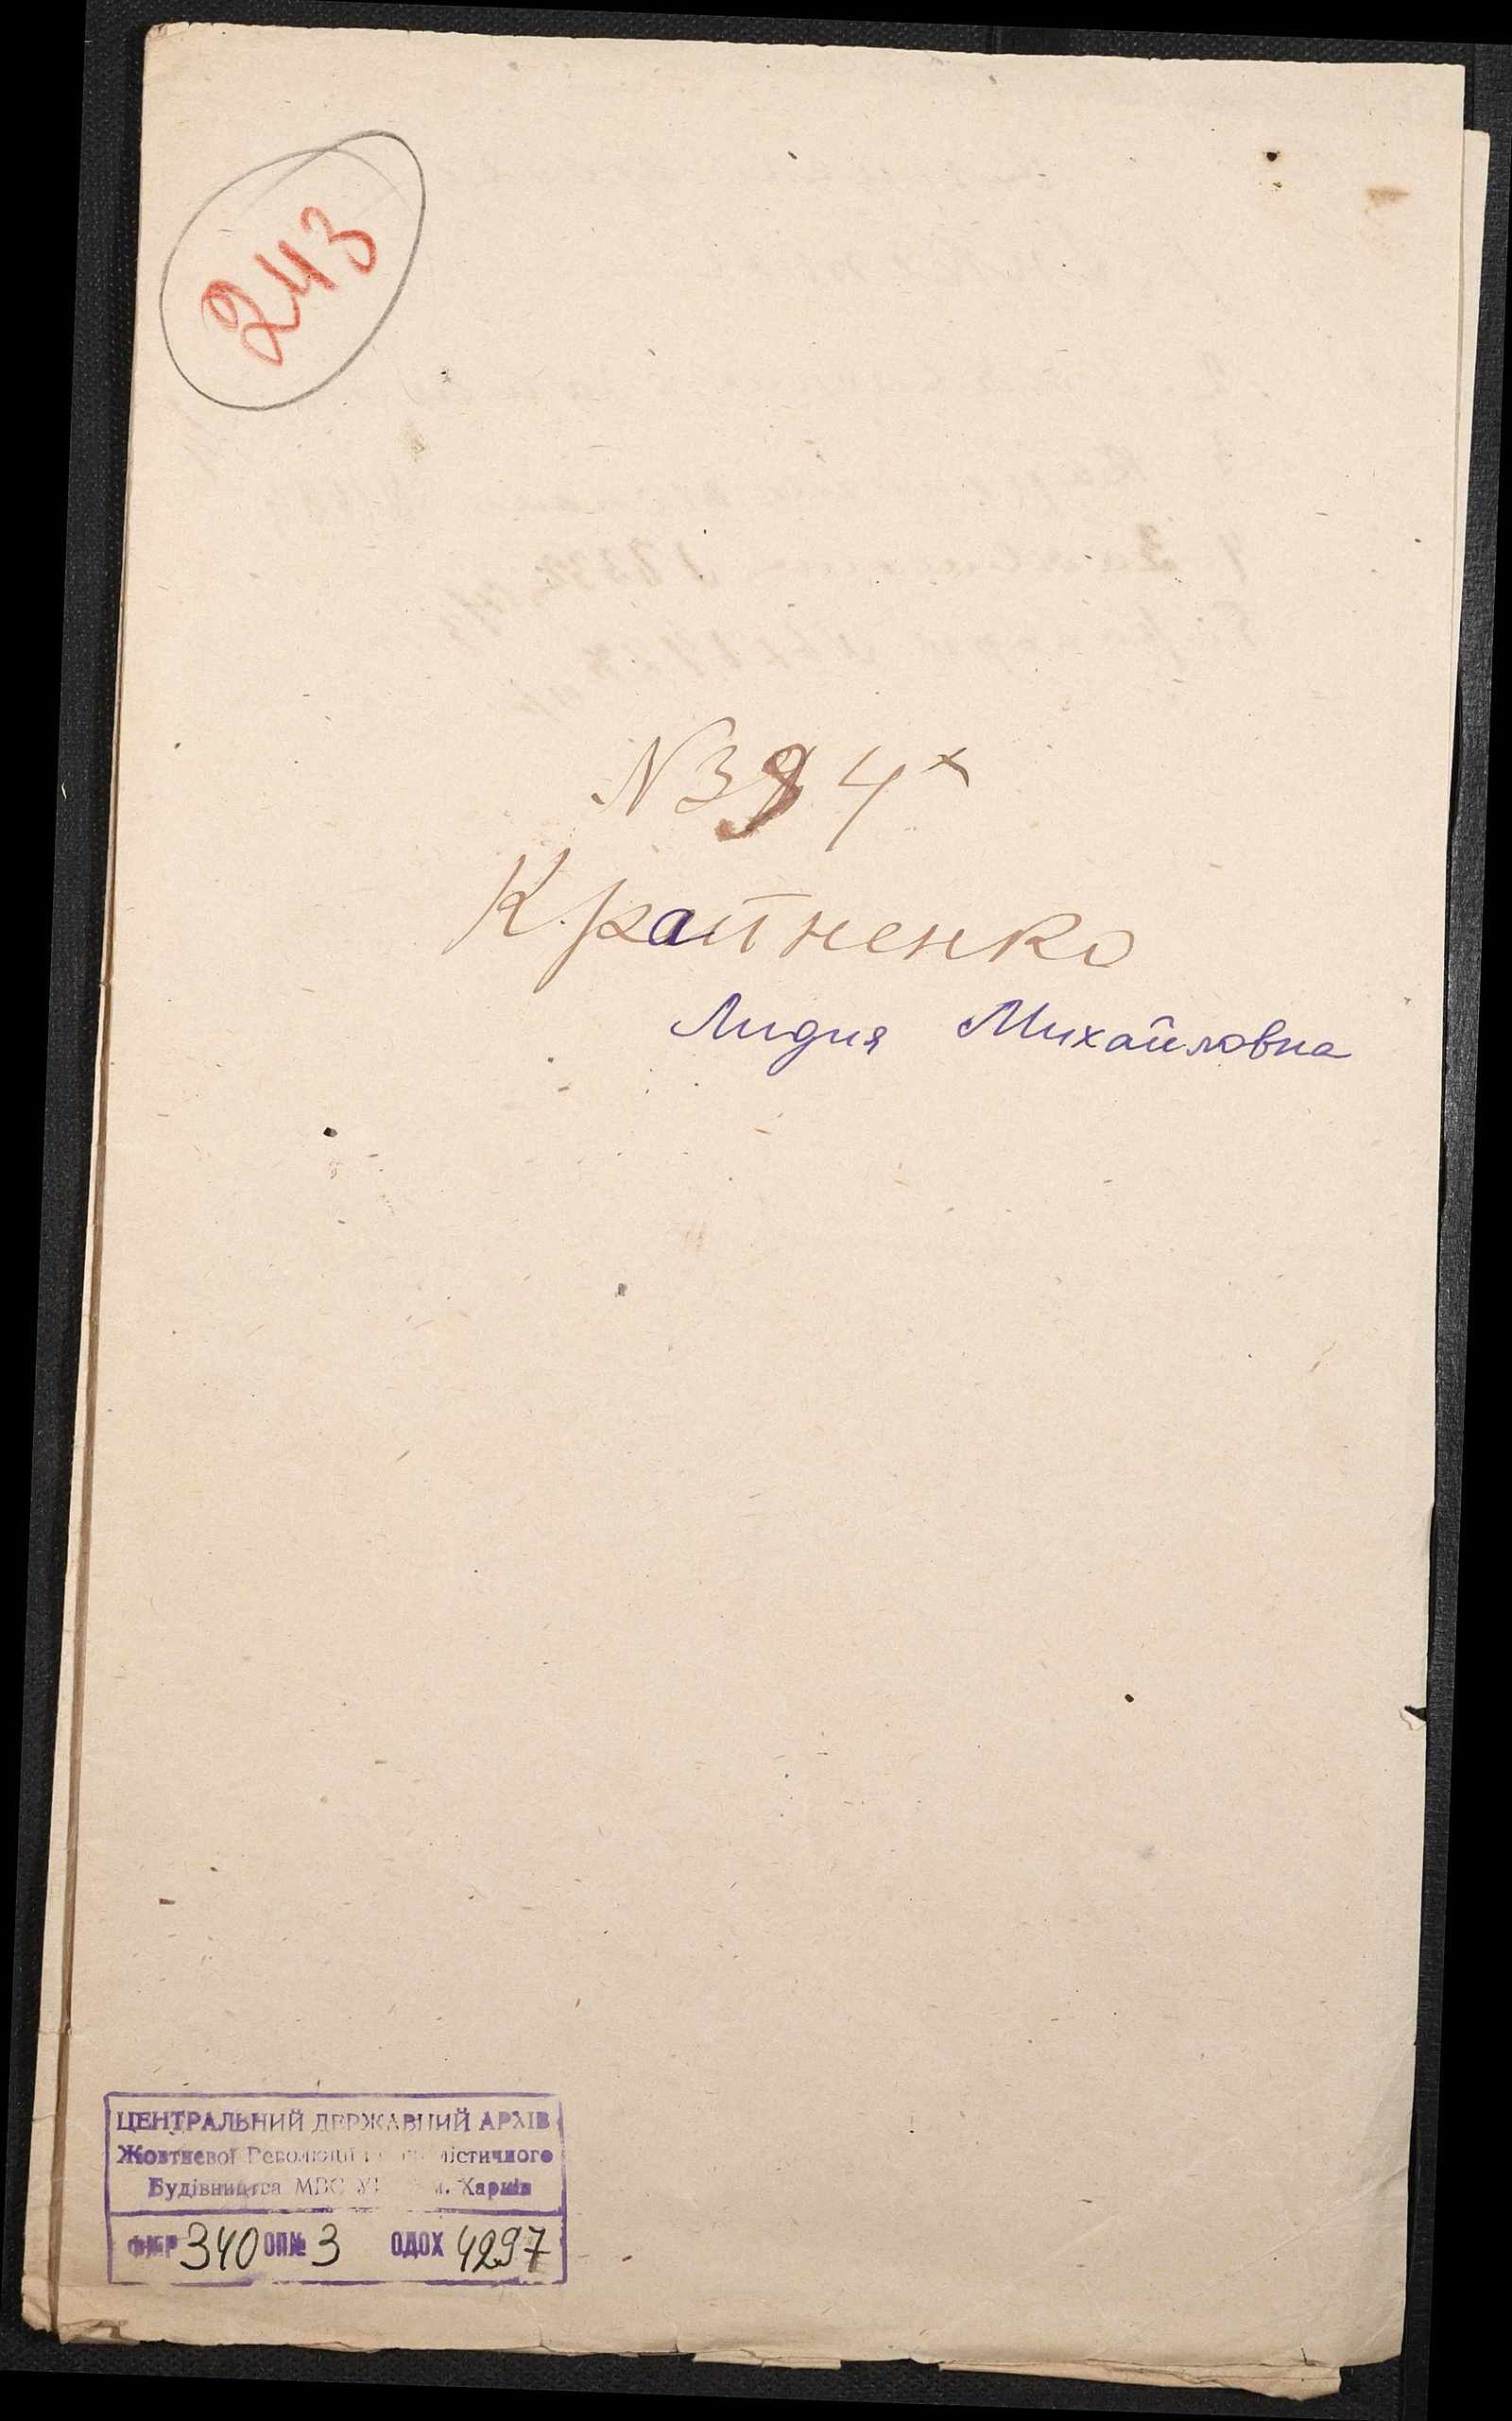 243
N 394 x
Крайненко
Лидия Михайловна
ЦЕНТРАЛЬНИЙ ДЕРЖАВНИЙ АРХІВ
Жовтневої Революції і
Будівництва МВС м. Харків
Ф№Р 340 ОП№ 3 ОДОХ 4297